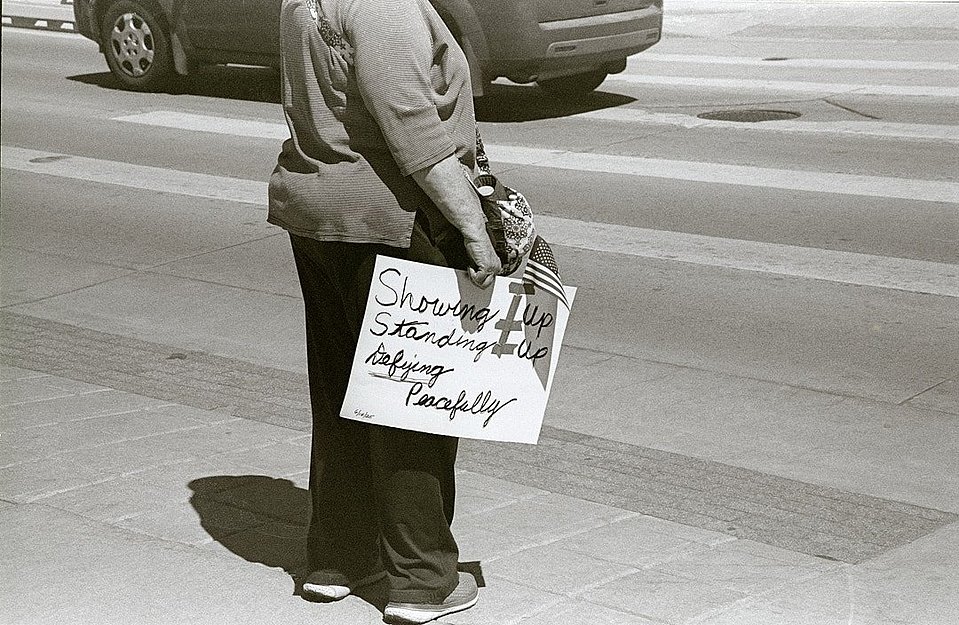 Showing Up
Standing Up
Defying
Peacefully